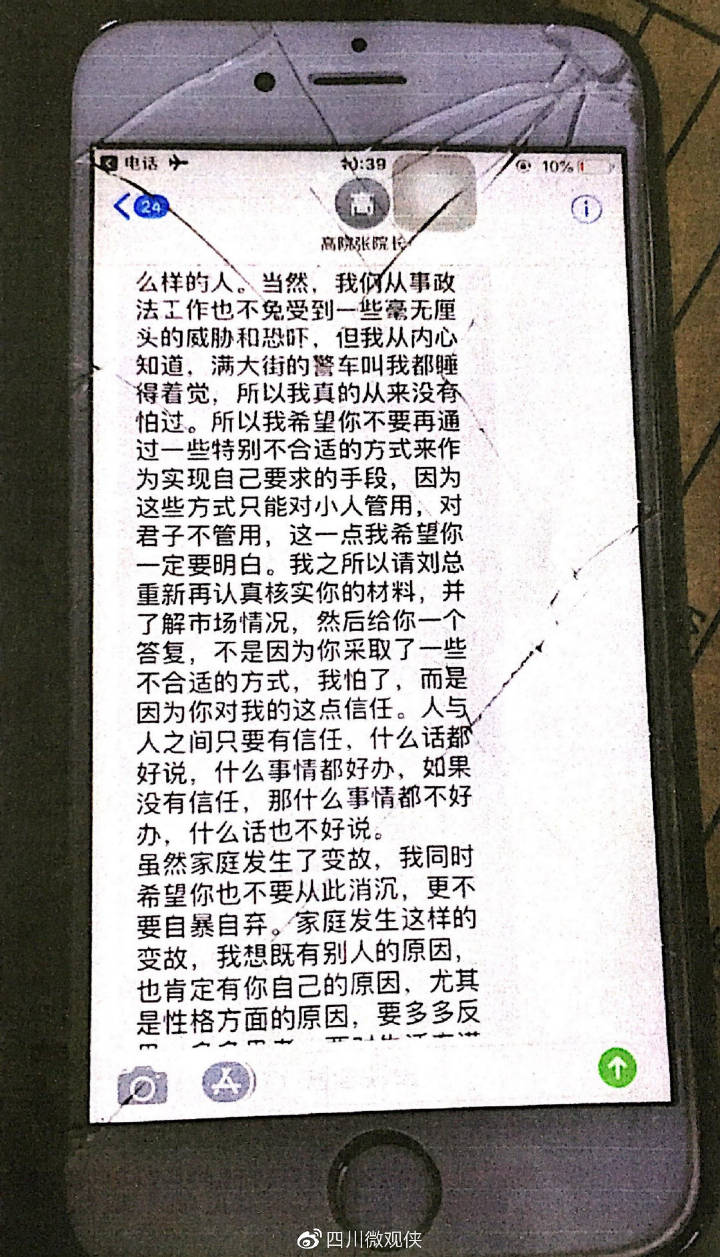 电话
10:39
10%
24
高
高院张院长
么样的人。当然，我们从事政
法工作也不免受到一些毫无厘
头的威胁和恐吓，但我从内心
知道，满大街的警车叫我都睡
得着觉，所以我真的从来没有
怕过。所以我希望你不要再通
过一些特别不合适的方式来作
为实现自己要求的手段，因为
这些方式只能对小人管用，对
君子不管用，这一点我希望你
一定要明白。我之所以请刘总
重新再认真核实你的材料，并
了解市场情况，然后给你一个
答复，不是因为你采取了一些
不合适的方式，我怕了，而是
因为你对我的这点信任。人与
人之间只要有信任，什么话都
好说，什么事情都好办，如果
没有信任，那什么事情都不好
办，什么话也不好说。
虽然家庭发生了变故，我同时
希望你也不要从此消沉，更不
要自暴自弃。家庭发生这样的
变故，我想既有别人的原因，
也肯定有你自己的原因，尤其
是性格方面的原因，要多多反
四川微观侠